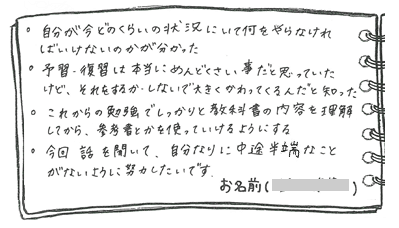 ・自分が今どのくらいの状況にいて何をやらなけれ
ばいけないのかが分かった
・予習・復習は本当にめんどくさい事だと思っていた
けど、それをするか・しないで大きくかわってくるんだと知った
・これからの勉強でしっかりと教科書の内容を理解
してから、参考書とかを使っていけるようにする
・今回話を聞いて、自分なりに中途半端なこと
がないように努力したいです.
お名前( )